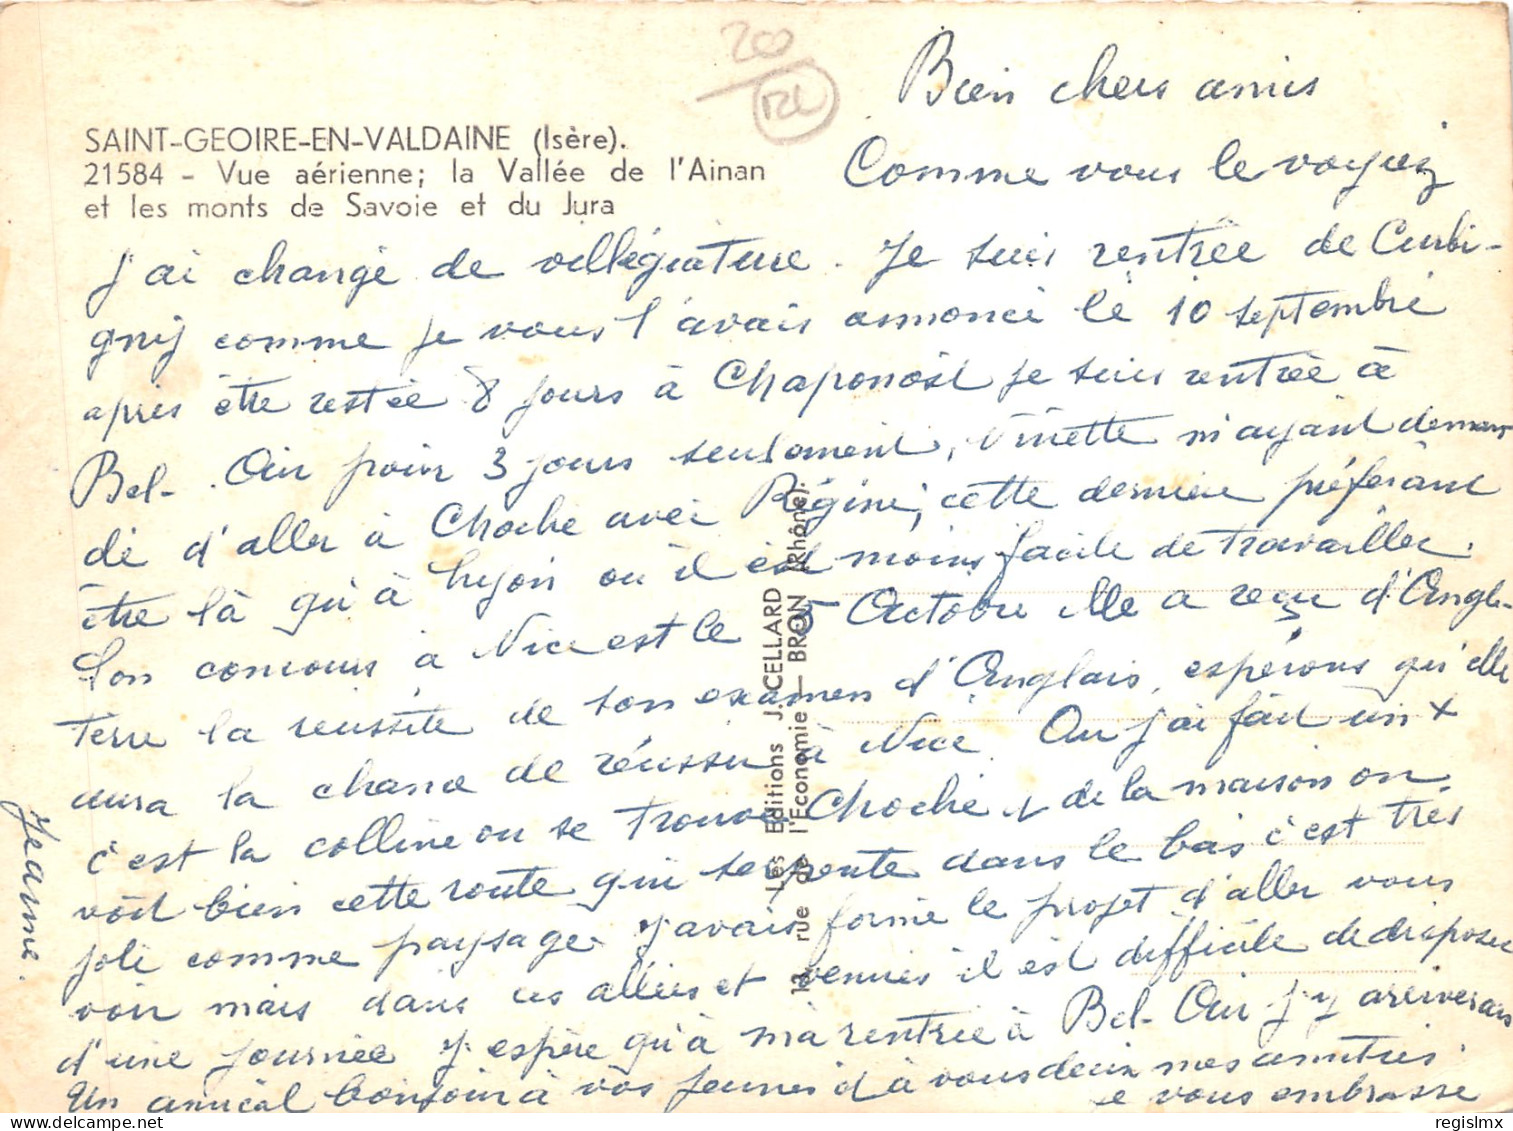 200
Bien chers amis
SAINT-GEOIRE-EN-VALDAINE (Isère).
21584 - Vue aérienne; la Vallée de l'Ainan
et les monts de Savoie et du Jura
Comme vous le voyiez
j'ai changé de villégiature. Je suis rentrée de Curbi-
gny comme je vous l'avais annoncé le 10 septembre
après être restée 8 jours à Chaponost je suis rentrée à
Bel-Air pour 3 jours seulement, Ninette m'ayant deman
dé d'aller à Choche avec Régine, cette dernière préférant
être là qu'à Lyon où il est moins facile de travailler.
Son concours à Nice est le 5 Octobre elle a reçu d'Angle-
terre la réussite de son examen d'Anglais, espérons qu'elle
aura la chance de réussir à Nice. Ou j'ai fait un +
c'est la colline ou se trouve Choche, de la maison on
voit bien cette route qui serpente dans le bas c'est très
joli comme paysage. J'avais formé le projet d'aller vous
voir mais dans ces allées et venues il est difficile de disposer
d'une journée. J'espère qu'à ma rentrée à Bel-Air j'y arriverais
Un amical bonjour à vos jeunes et à vous deux mes amitiés.
je vous embrasse
Jeanne.
Les Editions J. CELLARD
13, rue de l'Economie - BRON (Rhône).
regislmx